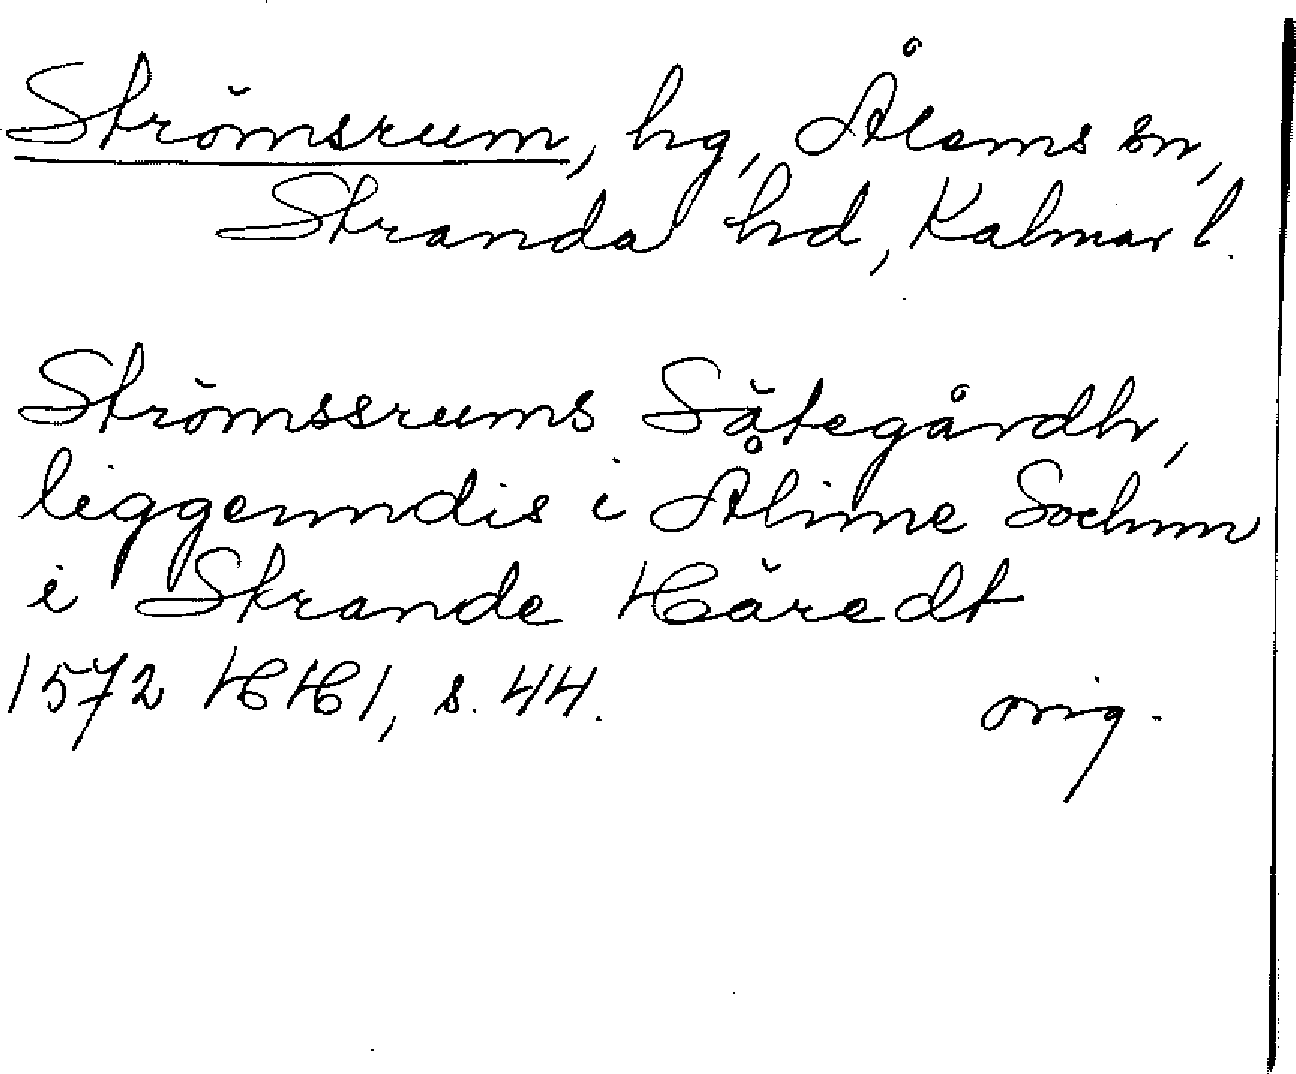 Strömsrum, hg, Ålems sn,
Stranda hd, Kalmar l.
Strömssrums Sätegårdh,
liggenndis i Ålime Sochnn
i Strande Häredt
1572 HH1, s. 44. orig.